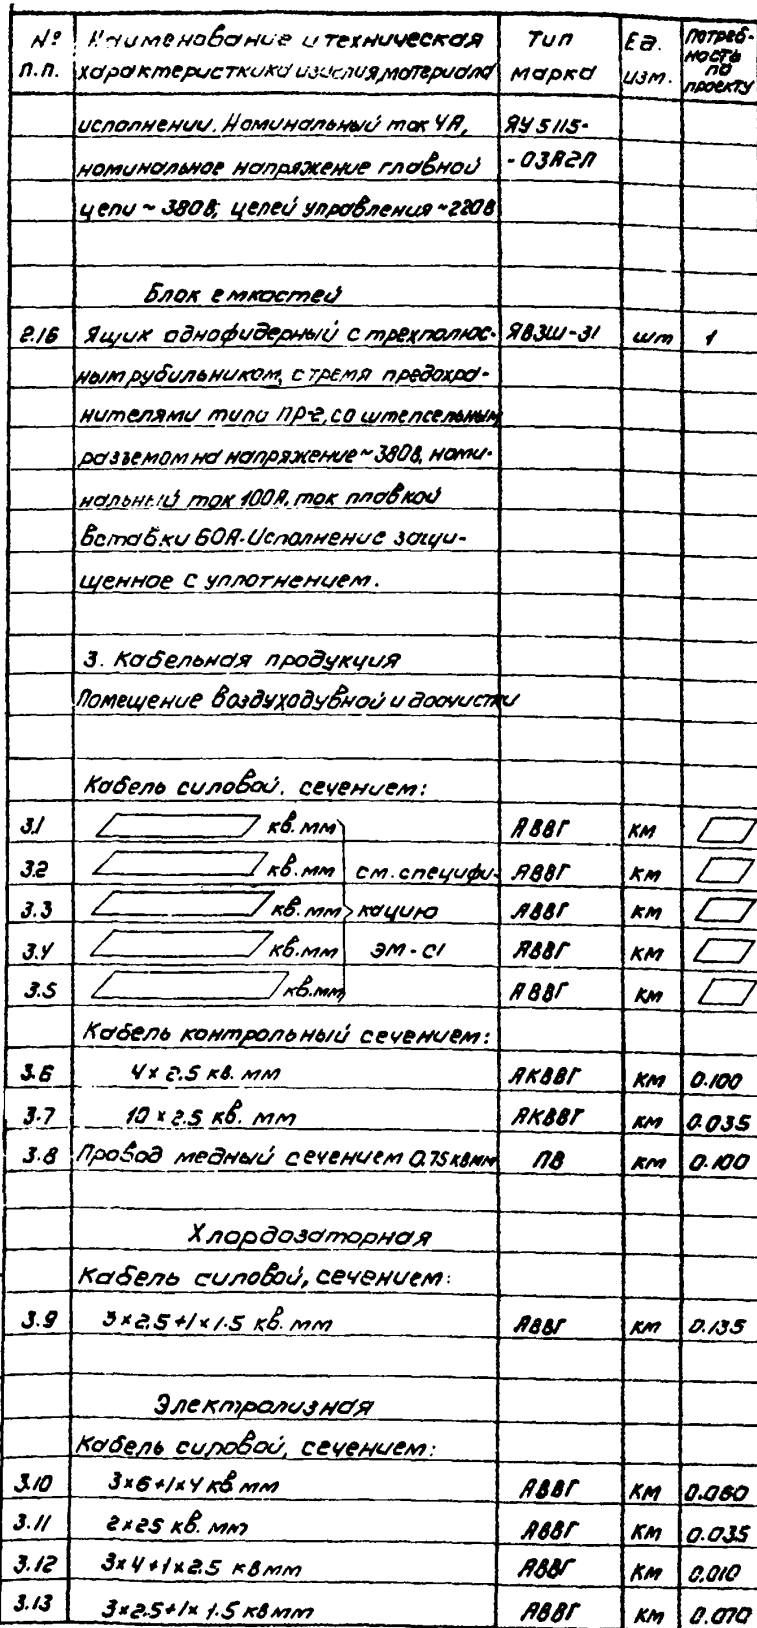 № п.п. Наименование и техническая характеристика изделия, материала Тип марка Ед. изм. Потребность по проекту
исполнении. Номинальный ток 4А, ЯУ 5115-
номинальное напряжение главной -03А2П
цепи ~ 380В, цепей управления ~220В
Блок емкостей
2.16 Ящик однофидерный с трехполюс- ЯВЗШ-31 шт 1
ным рубильником, с тремя предохра-
нителями типа ПР-2, со штепсельным
разъемом на напряжение ~380В, номи-
нальный ток 100А, ток плавкой
вставки 60А. Исполнение защи-
щенное с уплотнением.
3. Кабельная продукция
Помещение воздуходувной и доочистки
Кабель силовой, сечением:
3.1 кв. мм АВВГ км
3.2 кв. мм см. специфи- АВВГ км
3.3 кв. мм кацию АВВГ км
3.4 кв. мм ЭМ-С1 АВВГ км
3.5 кв. мм АВВГ км
Кабель контрольный сечением:
3.6 4 x 2.5 кв. мм АКВВГ км 0.100
3.7 10 x 2.5 кв. мм АКВВГ км 0.035
3.8 Провод медный сечением 0.75 кв мм ПВ км 0.100
Хлордозаторная
Кабель силовой, сечением:
3.9 3x2.5+1x1.5 кв. мм АВВГ км 0.135
Электролизная
Кабель силовой, сечением:
3.10 3x6+1x4 кв. мм АВВГ км 0.060
3.11 2x25 кв. мм АВВГ км 0.035
3.12 3x4+1x2.5 кв мм АВВГ км 0.010
3.13 3x2.5+1x1.5 кв мм АВВГ км 0.070